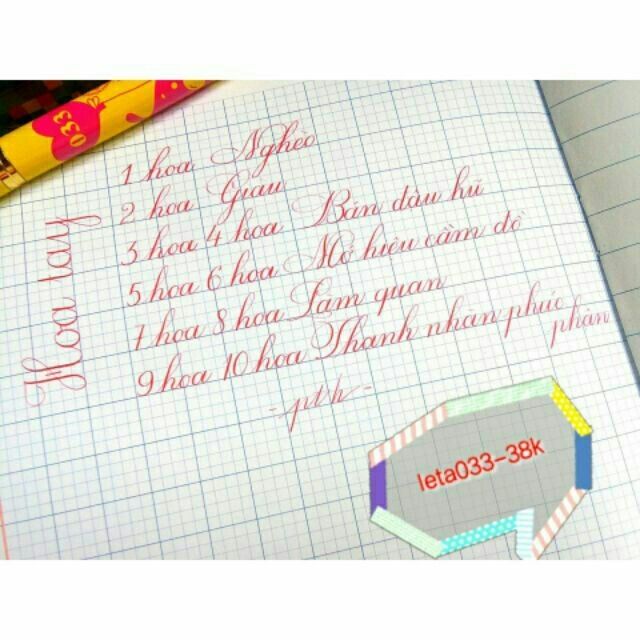 033
Hoa tay
1 hoa Nghèo
2 hoa Giàu
3 hoa 4 hoa Bán đậu hũ
5 hoa 6 hoa Mở hiệu cầm đồ
7 hoa 8 hoa Làm quan
9 hoa 10 hoa Thanh nhàn phúc
phận
-pth-
leta033-38k